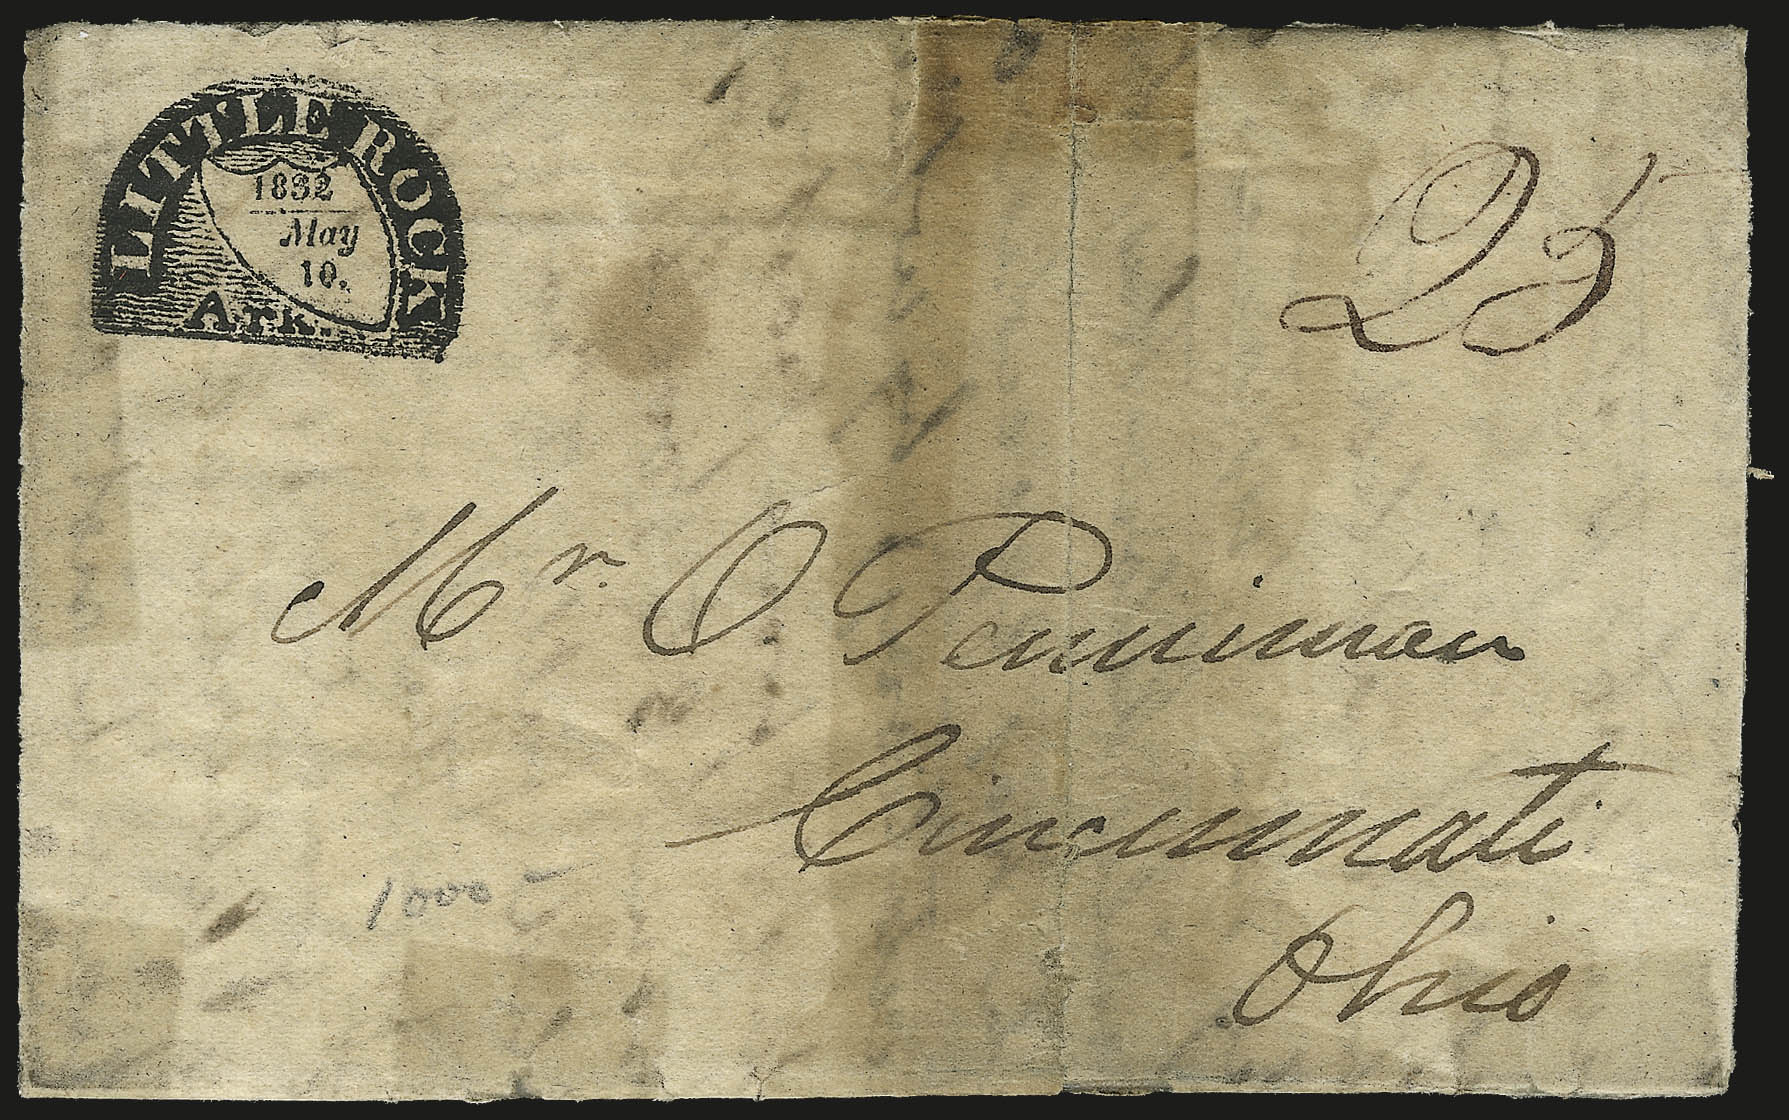 LITTLE ROCK
1832
May
10.
Ark.
25
Mr. O. Penniman
Cincinnati
Ohio
1000